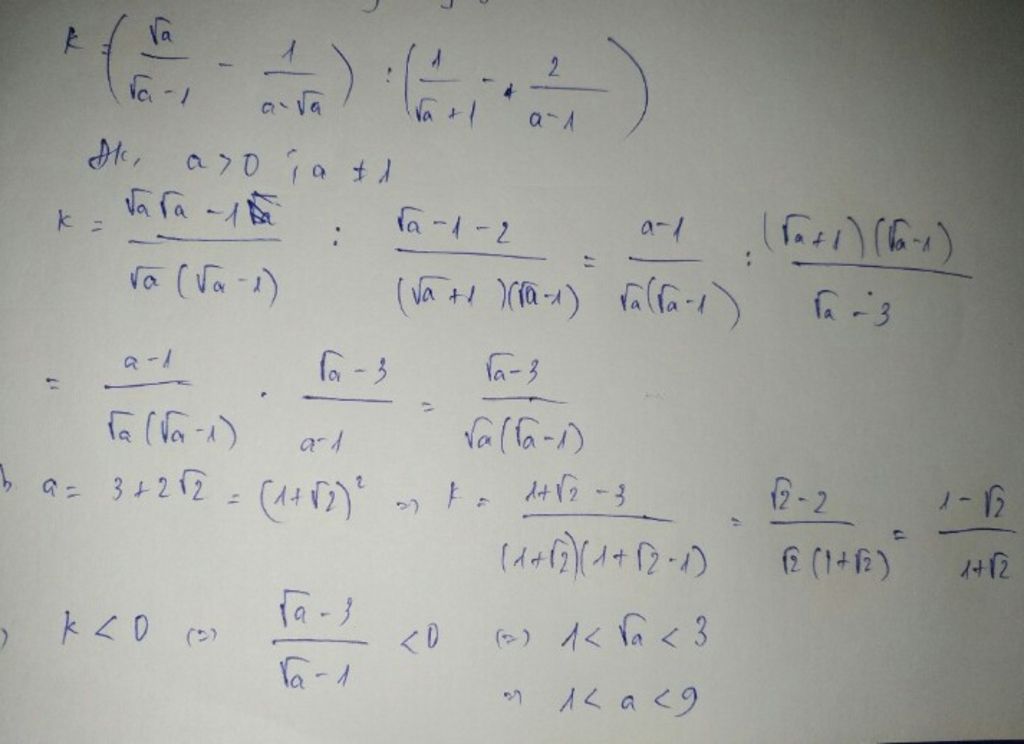 K = (√a/(√a - 1) - 1/(a - √a)) : (1/(√a + 1) - 2/(a - 1))
ĐK, a > 0 ; a ≠ 1
K = (√a √a - 1)/(√a (√a - 1)) : (√a - 1 - 2)/((√a + 1)(√a - 1)) = (a - 1)/(√a(√a - 1)) : ((√a + 1)(√a - 1))/(√a - 3)
= (a - 1)/(√a (√a - 1)) . (√a - 3)/(a - 1) = (√a - 3)/(√a (√a - 1))
b a = 3 + 2√2 = (1 + √2)² => K = (1 + √2 - 3)/((1 + √2)(1 + √2 - 1)) = (√2 - 2)/(√2 (1 + √2)) = (1 - √2)/(1 + √2)
) K < 0 (=) (√a - 3)/(√a - 1) < 0 (=) 1 < √a < 3
=> 1 < a < 9